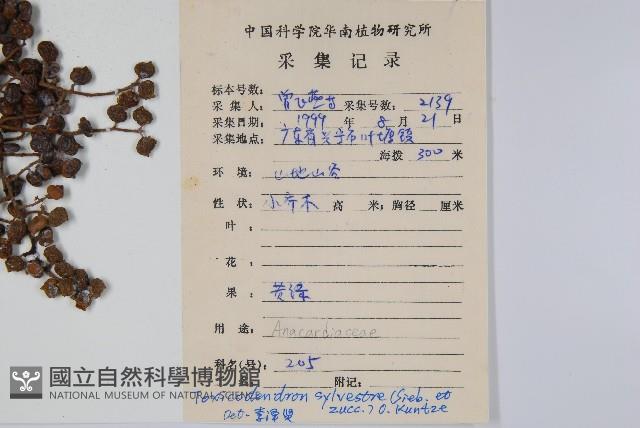 中国科学院华南植物研究所
采集记录
标本号数:
采集人: 曾飞燕 采集号数: 2139
采集日期: 1999 年 8 月 21 日
采集地点: 广东省兴宁市叶塘镇
海拨 300 米
环境: 山地山谷
性状: 小乔木 高 米; 胸径 厘米
叶:
花:
果: 黄绿
用途: Anacardiaceae
科名(号): 205
附记:
Toxicodendron sylvestre (Sieb. et
Zucc.) O. Kuntze
Det.
國立自然科學博物館
NATIONAL MUSEUM OF NATURAL SCIENCE